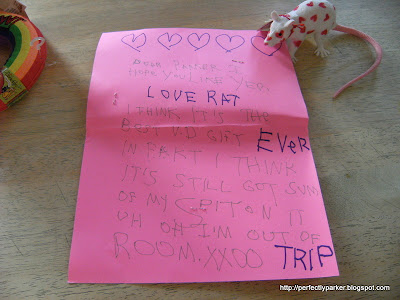 DEAR PARKER
HOPE YOU LIKE YER
LOVE RAT
I THINK IT'S THE
BEST VD GIFT EVER
IN FAKT I THINK
IT'S STILL GOT SUM
OF MY SPIT ON IT
UH OH I'M OUT OF
ROOM. XXOO TRIP
http://perfectlyparker.blogspot.com